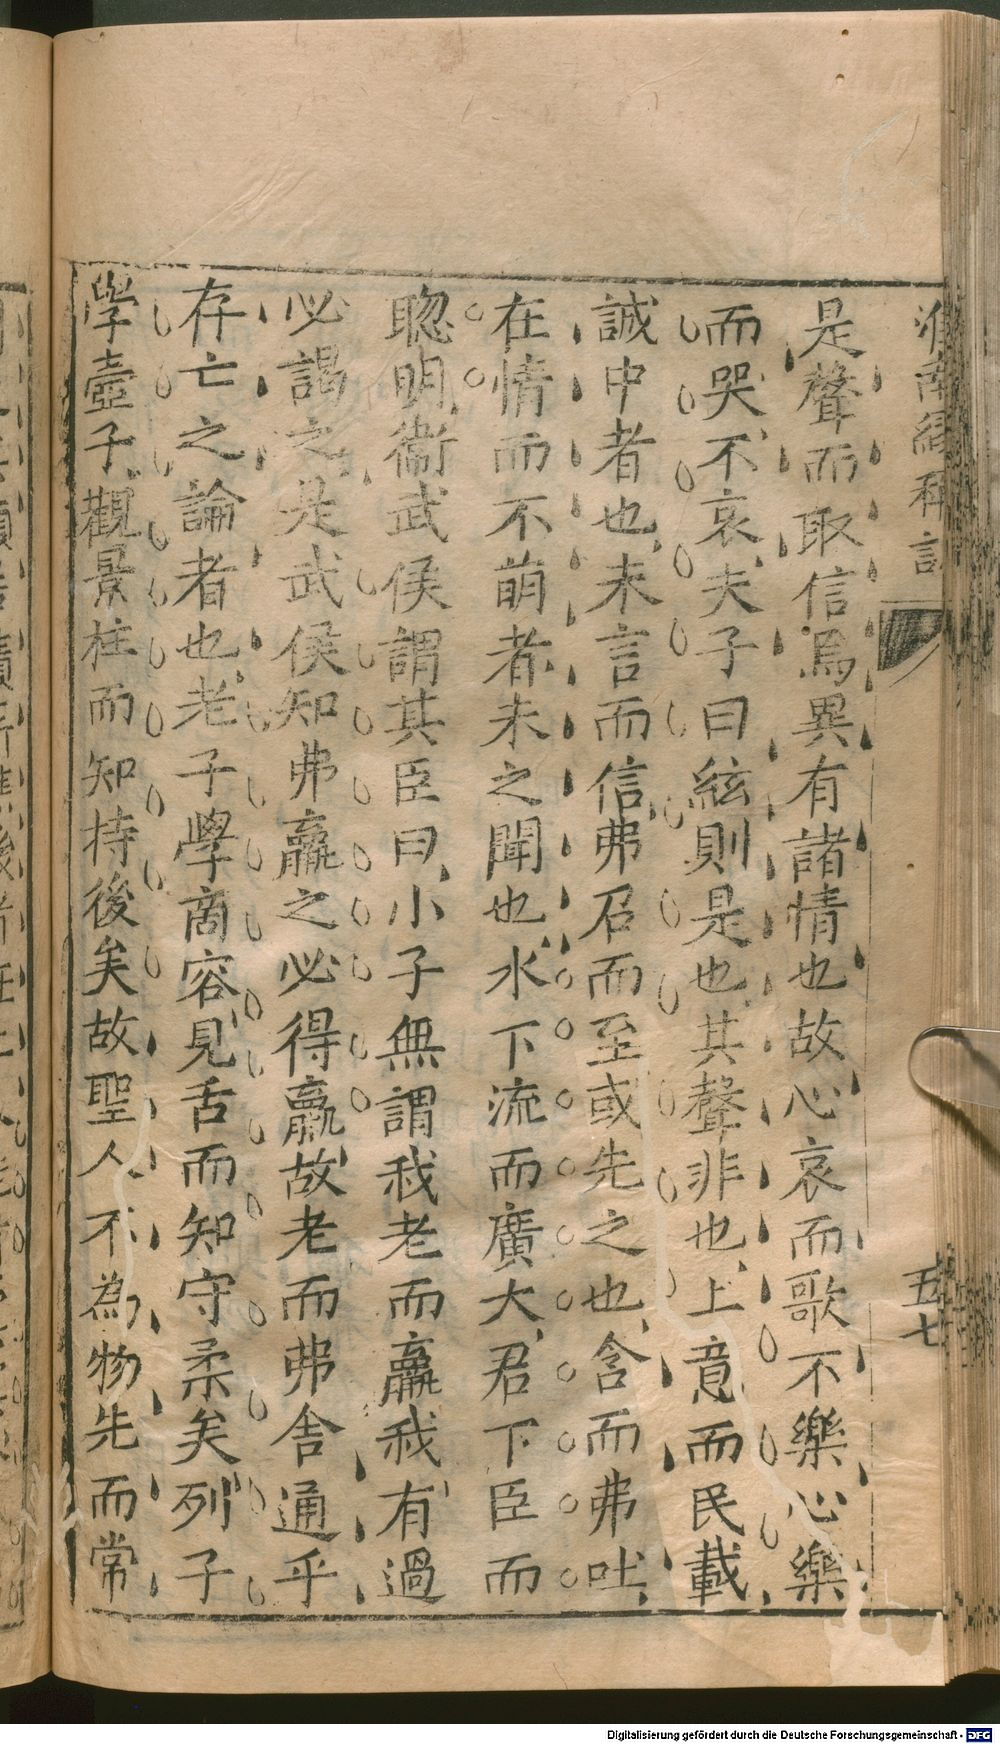 淮南繆稱訓
五七
是聲而取信焉異有諸情也故心哀而歌不樂心樂
而哭不哀夫子曰絃則是也其聲非也上意而民載
誠中者也未言而信弗召而至或先之也含而弗吐
在情而不萌者未之聞也水下流而廣大君下臣而
聦明衞武侯謂其臣曰小子無謂我老而羸我有過
必謁之是武侯知弗羸之必得羸故老而弗舍通乎
存亡之論者也老子學商容見舌而知守柔矣列子
學壺子觀景柱而知持後矣故聖人不為物先而常
Digitalisierung gefördert durch die Deutsche Forschungsgemeinschaft - DFG